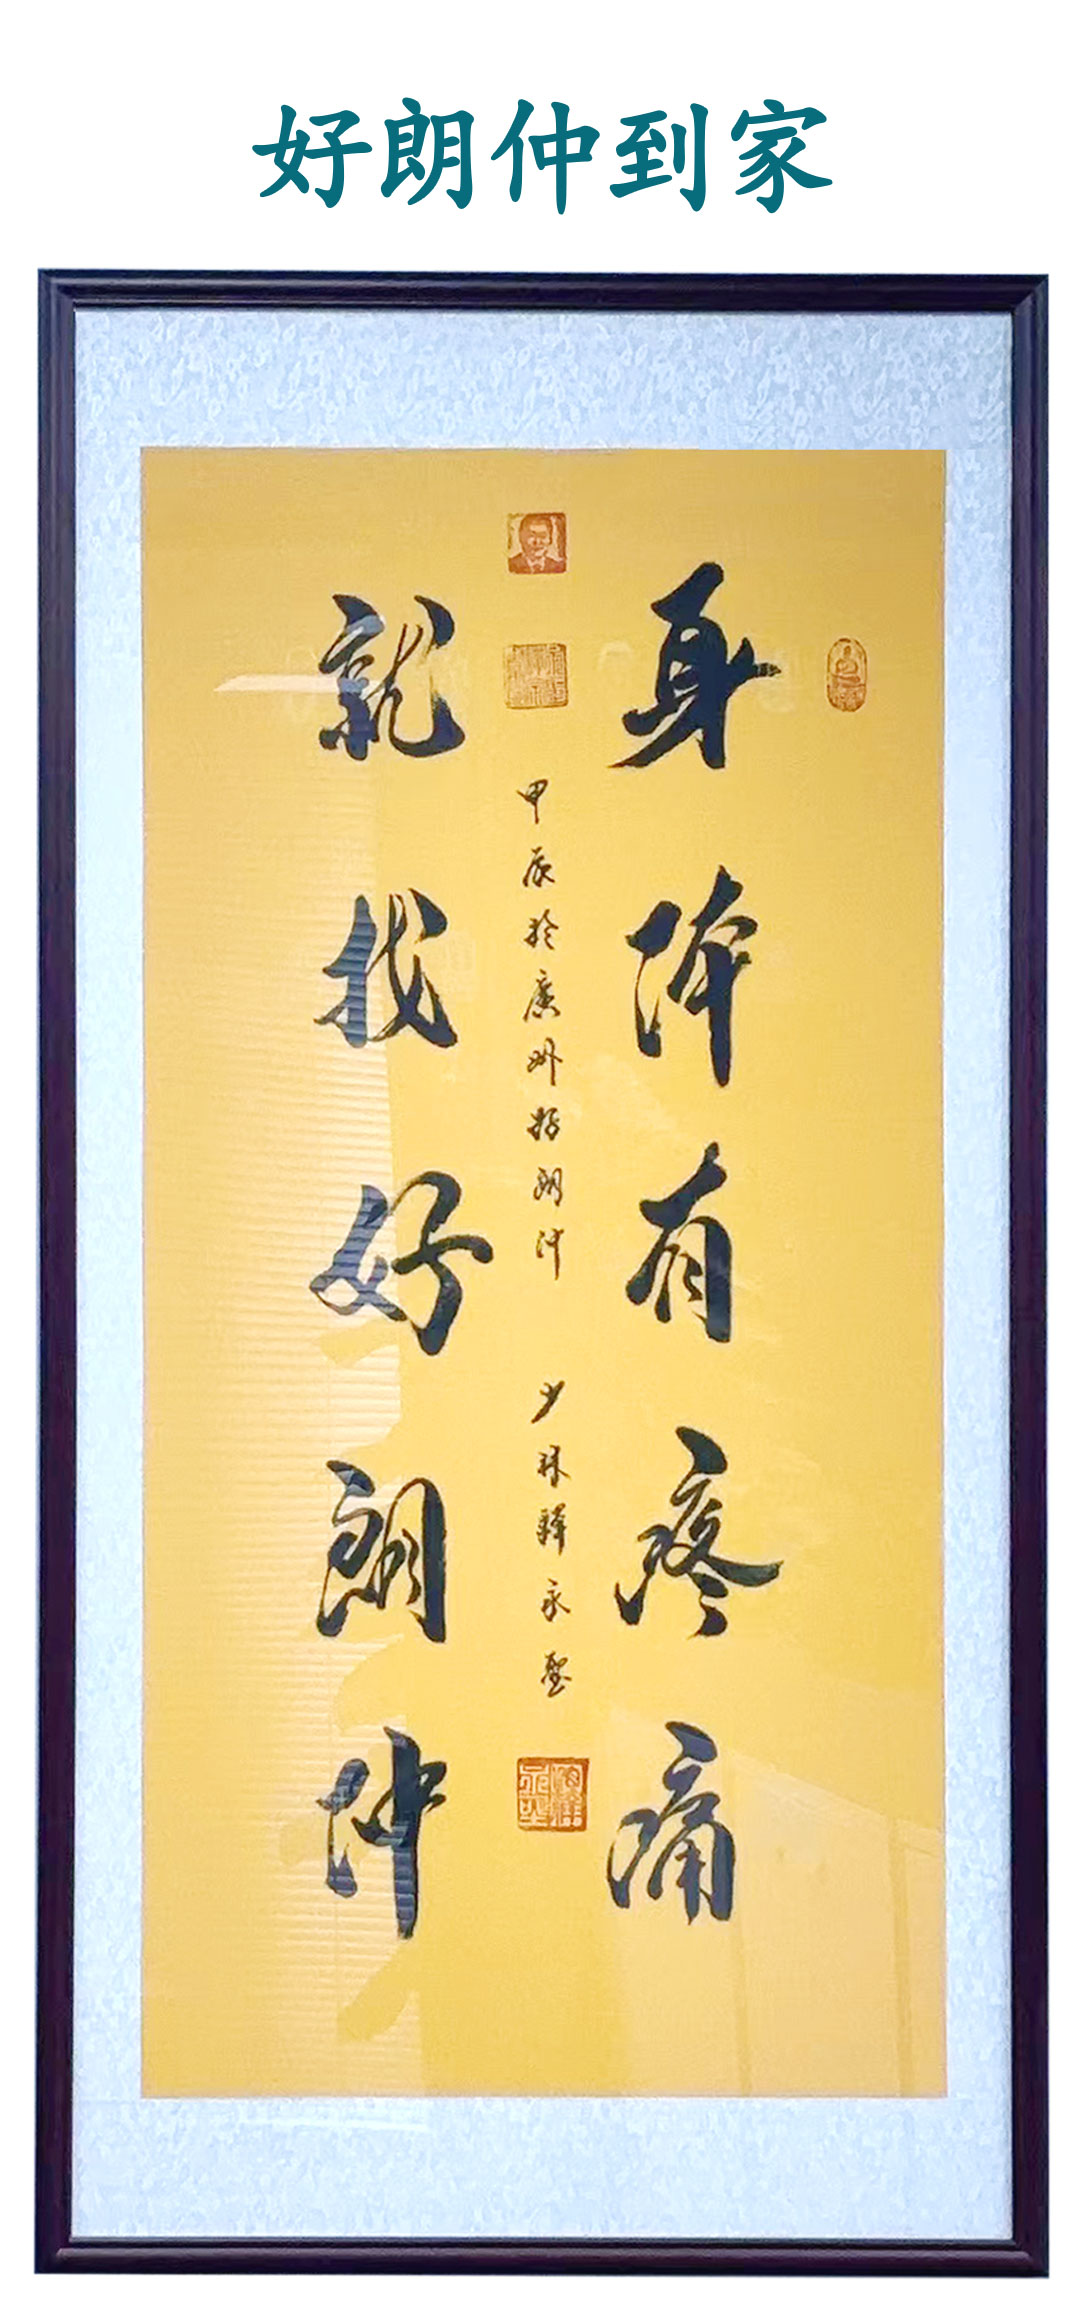 好朗仲到家
身体有疼痛
甲辰於廣州好朗仲
少林釋永聖
就找好朗仲